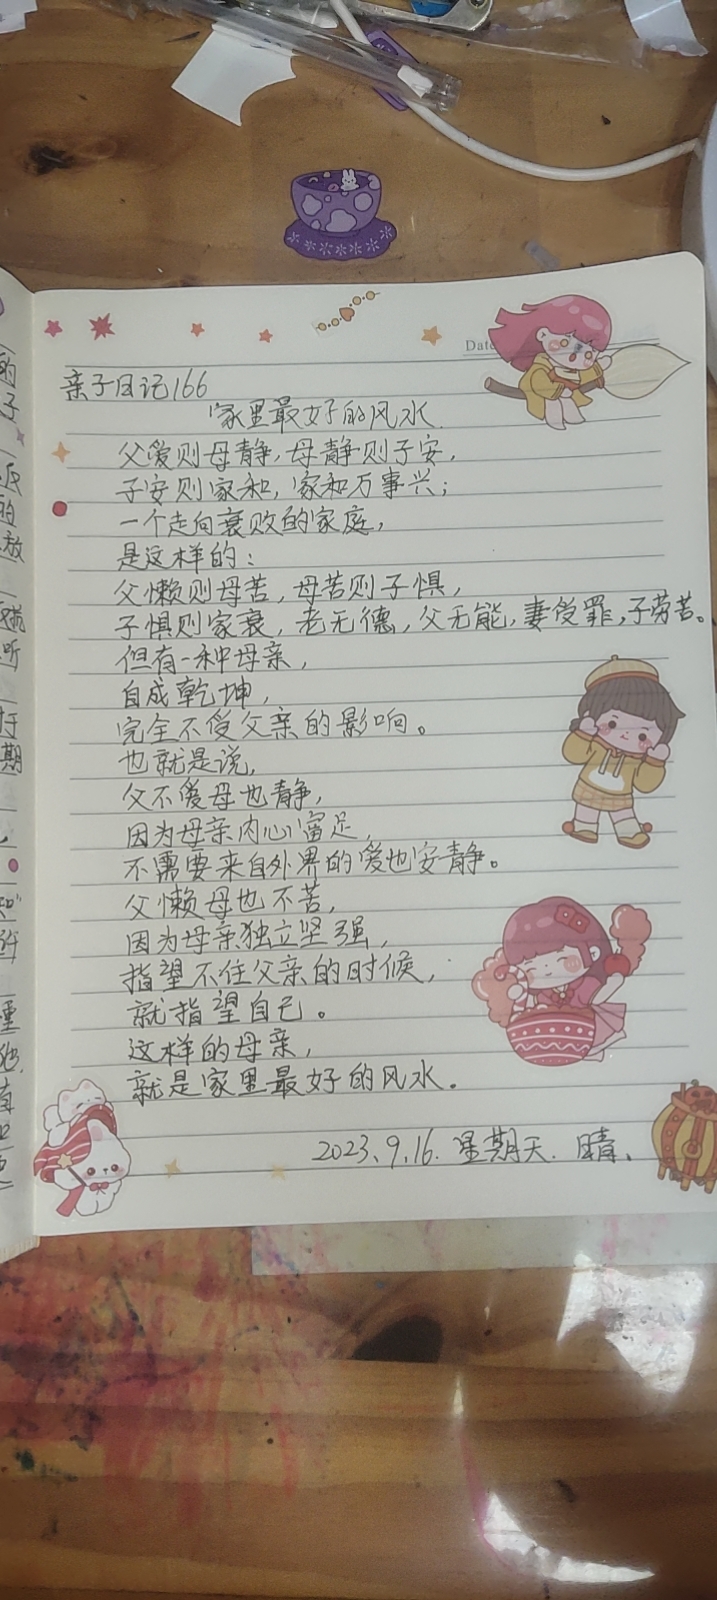 亲子日记166
家里最好的风水
父爱则母静,母静则子安,
子安则家和,家和万事兴;
一个走向衰败的家庭,
是这样的:
父懒则母苦,母苦则子惧,
子惧则家衰,老无德,父无能,妻受罪,子劳苦。
但有一种母亲,
自成乾坤,
完全不受父亲的影响。
也就是说,
父不爱母也静,
因为母亲内心富足,
不需要来自外界的爱也安静。
父懒母也不苦,
因为母亲独立坚强,
指望不住父亲的时候,
就指望自己。
这样的母亲,
就是家里最好的风水。
2023.9.16.星期天.晴.